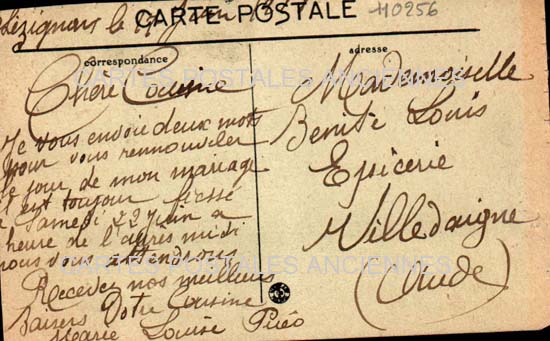 Lézignan le 19 Juin
CARTE POSTALE
110256
correspondance
adresse
CARTES POSTALES ANCIENNES
Chère Cousine
Je vous envoie deux mots
pour vous rennouveler
le jour de mon mariage
est toujour fiessé
Samedi 22 Juin a
heure de l'après midi
nous vous attendrons
Recevez nos meilleurs
Baisers Votre Cousine
Marie Louise
Mademoiselle
Benite Louis
Epicerie
Villedaigne
(Aude)
CARTES POSTALES ANCIENNES